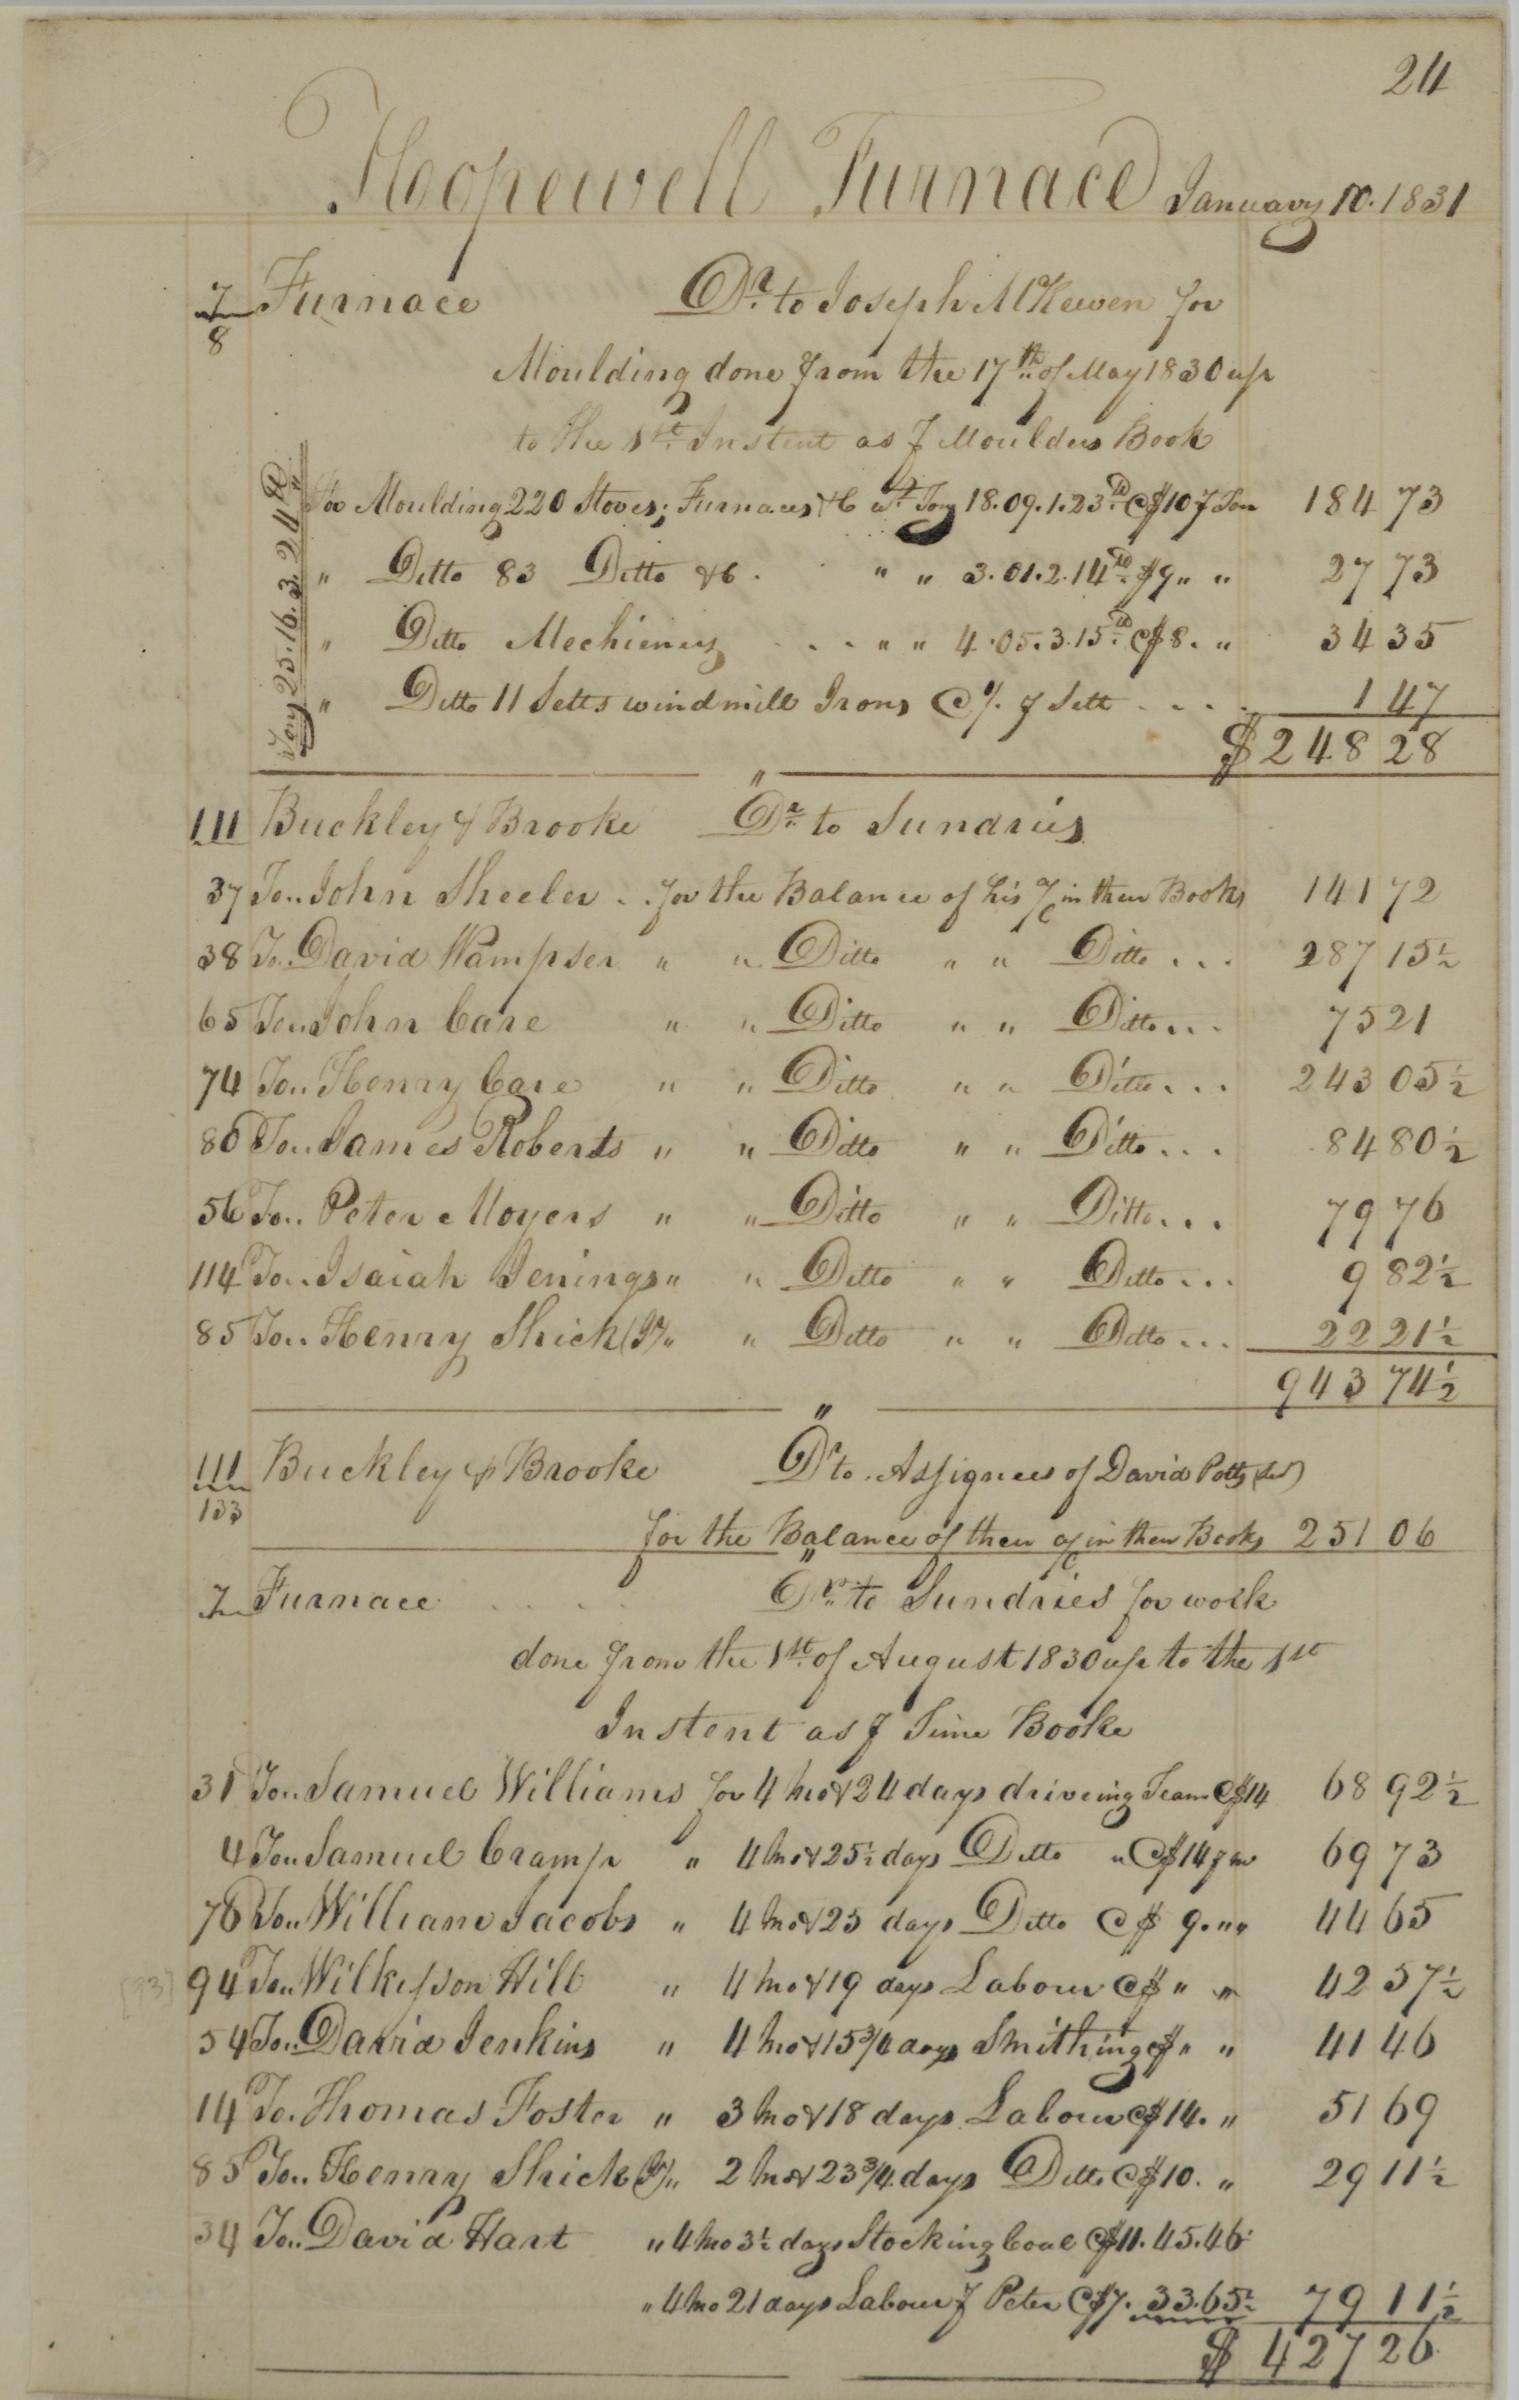 24
Hopewell Furnace January 10. 1831
7/8 Furnace Dr. to Joseph McKewen for
Moulding done from the 17th of May 1830 up
to the 1st Instent as ⅌ Moulders Book
For Moulding 220 Stoves; Furnaces &c wt. Tons 18.09.1.23 lb @ $10 ⅌ Ton 184 73
" Ditto 83 Ditto &c. " " 3.01.2.14 lb $9 " " 27 73
" Ditto Mechienery . . . " " 4.05.3.15 lb @ $8. " 34 35
" Ditto 11 Setts windmill Irons @ 1/. ⅌ Sett . . . . 1 47
Tons 25.16.3.24 lb
$ 248 28
111 Buckley & Brooke Dr. to Sundries
37 To.. John Sheeler . . for the Balance of his a/c in their Books 141 72
38 To.. David Wampser " " Ditto " " Ditto . . . 287 15½
65 To.. John Care " " Ditto " " Ditto . . . 75 21
74 To.. Henry Care " " Ditto " " Ditto . . . 243 05½
80 To.. James Roberts " " Ditto " " Ditto . . . 84 80½
56 To.. Peter Moyers " " Ditto " " Ditto . . . 79 76
114 To.. Isaiah Jenings " " Ditto " " Ditto . . . 9 82½
85 To.. Henry Shick (Jr) " " Ditto " " Ditto . . . 22 21½
943 74½
111/133 Buckley & Brooke Dr. to Assignees of David Potts (Sr)
for the Balance of their a/c in their Books 251 06
7 Furnace . . . . Dr. to Sundries for work
done from the 1st of August 1830 up to the 1st
Instent as ⅌ Time Booke
31 To.. Samuel Williams for 4 mo & 24 days driveing Team @ $14 68 92½
4 To.. Samuel Cramp " 4 mo & 25½ days Ditto " @ $14 ⅌ m 69 73
76 To.. William Jacobs " 4 mo & 25 days Ditto @ $ 9. " " 44 65
[93] 94 To.. Wilkisson Hill " 4 mo & 19 days Labour @ $ " " 42 57½
54 To.. David Jenkins " 4 mo & 15¾ days Smithing @ $ " " 41 46
14 To. Thomas Foster " 3 mo & 18 days Labour @ $14. " 51 69
85 To.. Henry Shick (Jr) " 2 mo & 23¾ days Ditto @ $10. " 29 11½
34 To.. David Hart " 4 mo 3½ days Stocking Coal @ $11. 45.46
" 4 mo 21 days Labour ⅌ Peter @ $7. 33.65½ 79 11½
$ 427 26